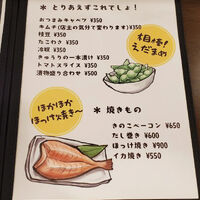 * とりあえずこれでしょ！
おつまみキャベツ ¥350
キムチ(店主の気分で変わります)¥350
枝豆 ¥350
たこわさ ¥350
冷奴 ¥350
きゅうりの一本漬け ¥350
トマトスライス ¥350
漬物盛り合わせ ¥500
相棒！
えだまめ
ほかほか
ほっけ焼き〜
* 焼きもの
きのこベーコン ¥650
だし巻き ¥600
ほっけ焼き ¥900
イカ焼き ¥550